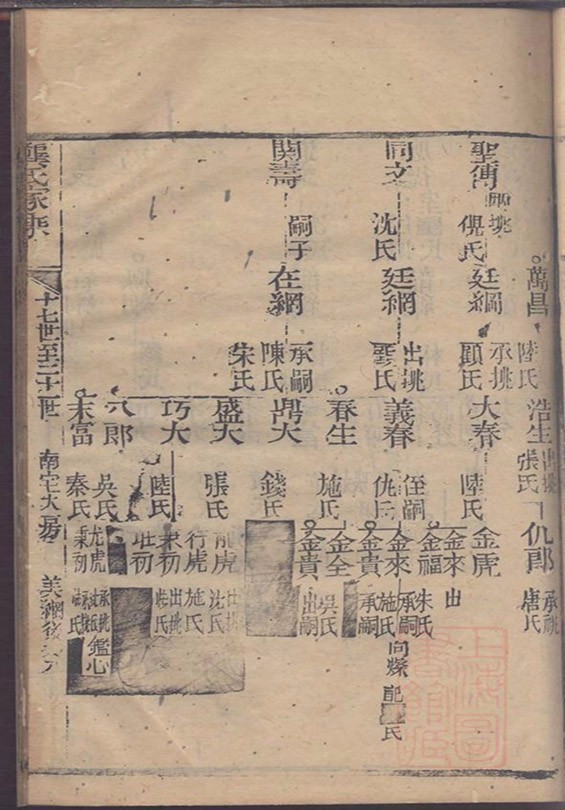 萬昌
陸氏
浩生
出挑
張氏
仉郎
承祧
唐氏
聖傳
兼挑
倪氏
廷綱
承挑
顧氏
大春
陸氏
金虎
金來
出
金福
朱氏
同文
沈氏
廷綱
出挑
龔氏
義春
侄嗣
仇氏
金來
承嗣
施氏
向燦
配
氏
金貴
承嗣
春生
施氏
金全
吳氏
金貴
出嗣
開壽
嗣子
在綱
承嗣
陳氏
朱氏
鼎大
錢氏
盛大
張氏
龍虎
沈氏
行虎
施氏
巧大
陸氏
秉初
出挑
壯初
八郎
吳氏
尤虎
承挑
鑑心
末富
秦氏
秉初
龔氏家乘
十七世至二十世
南宅大房
美瀾後